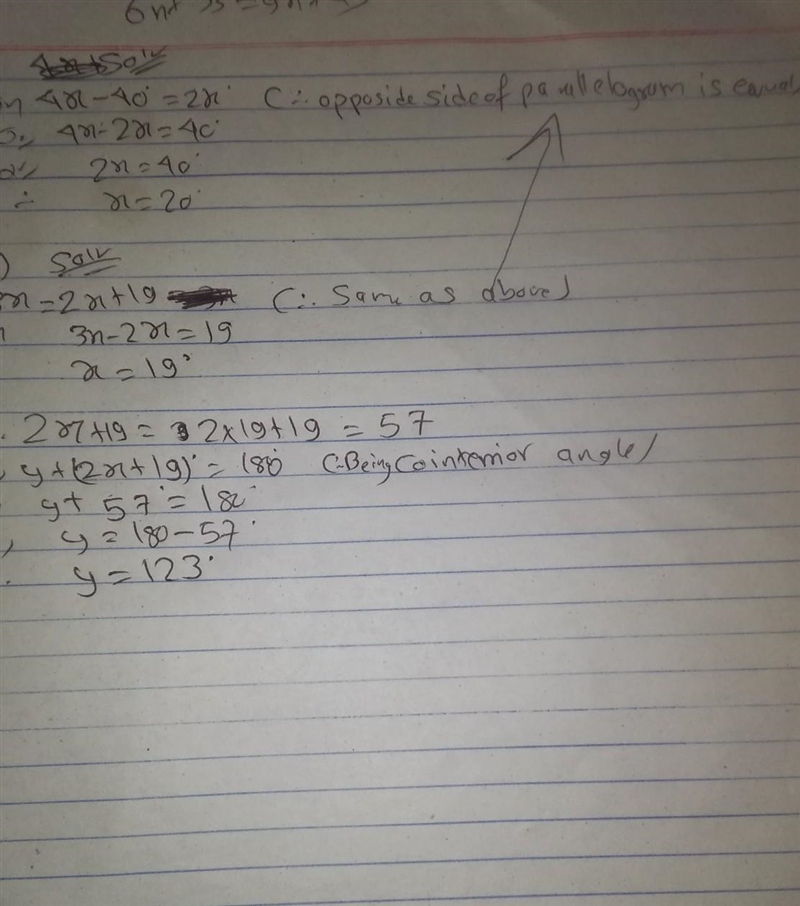 Solv
4x-40° = 2x° (∴ opposide side of parallelogram is equal
4x-2x=40°
2x=40°
∴ x=20°
) Solv
3x=2x+19 (∴ Same as above)
3x-2x=19
x=19°
2x+19= 2x19+19 = 57
y+(2x+19)° = 180 (∴Being Cointerrior angle)
y+ 57° = 180°
y=180-57°
y=123°